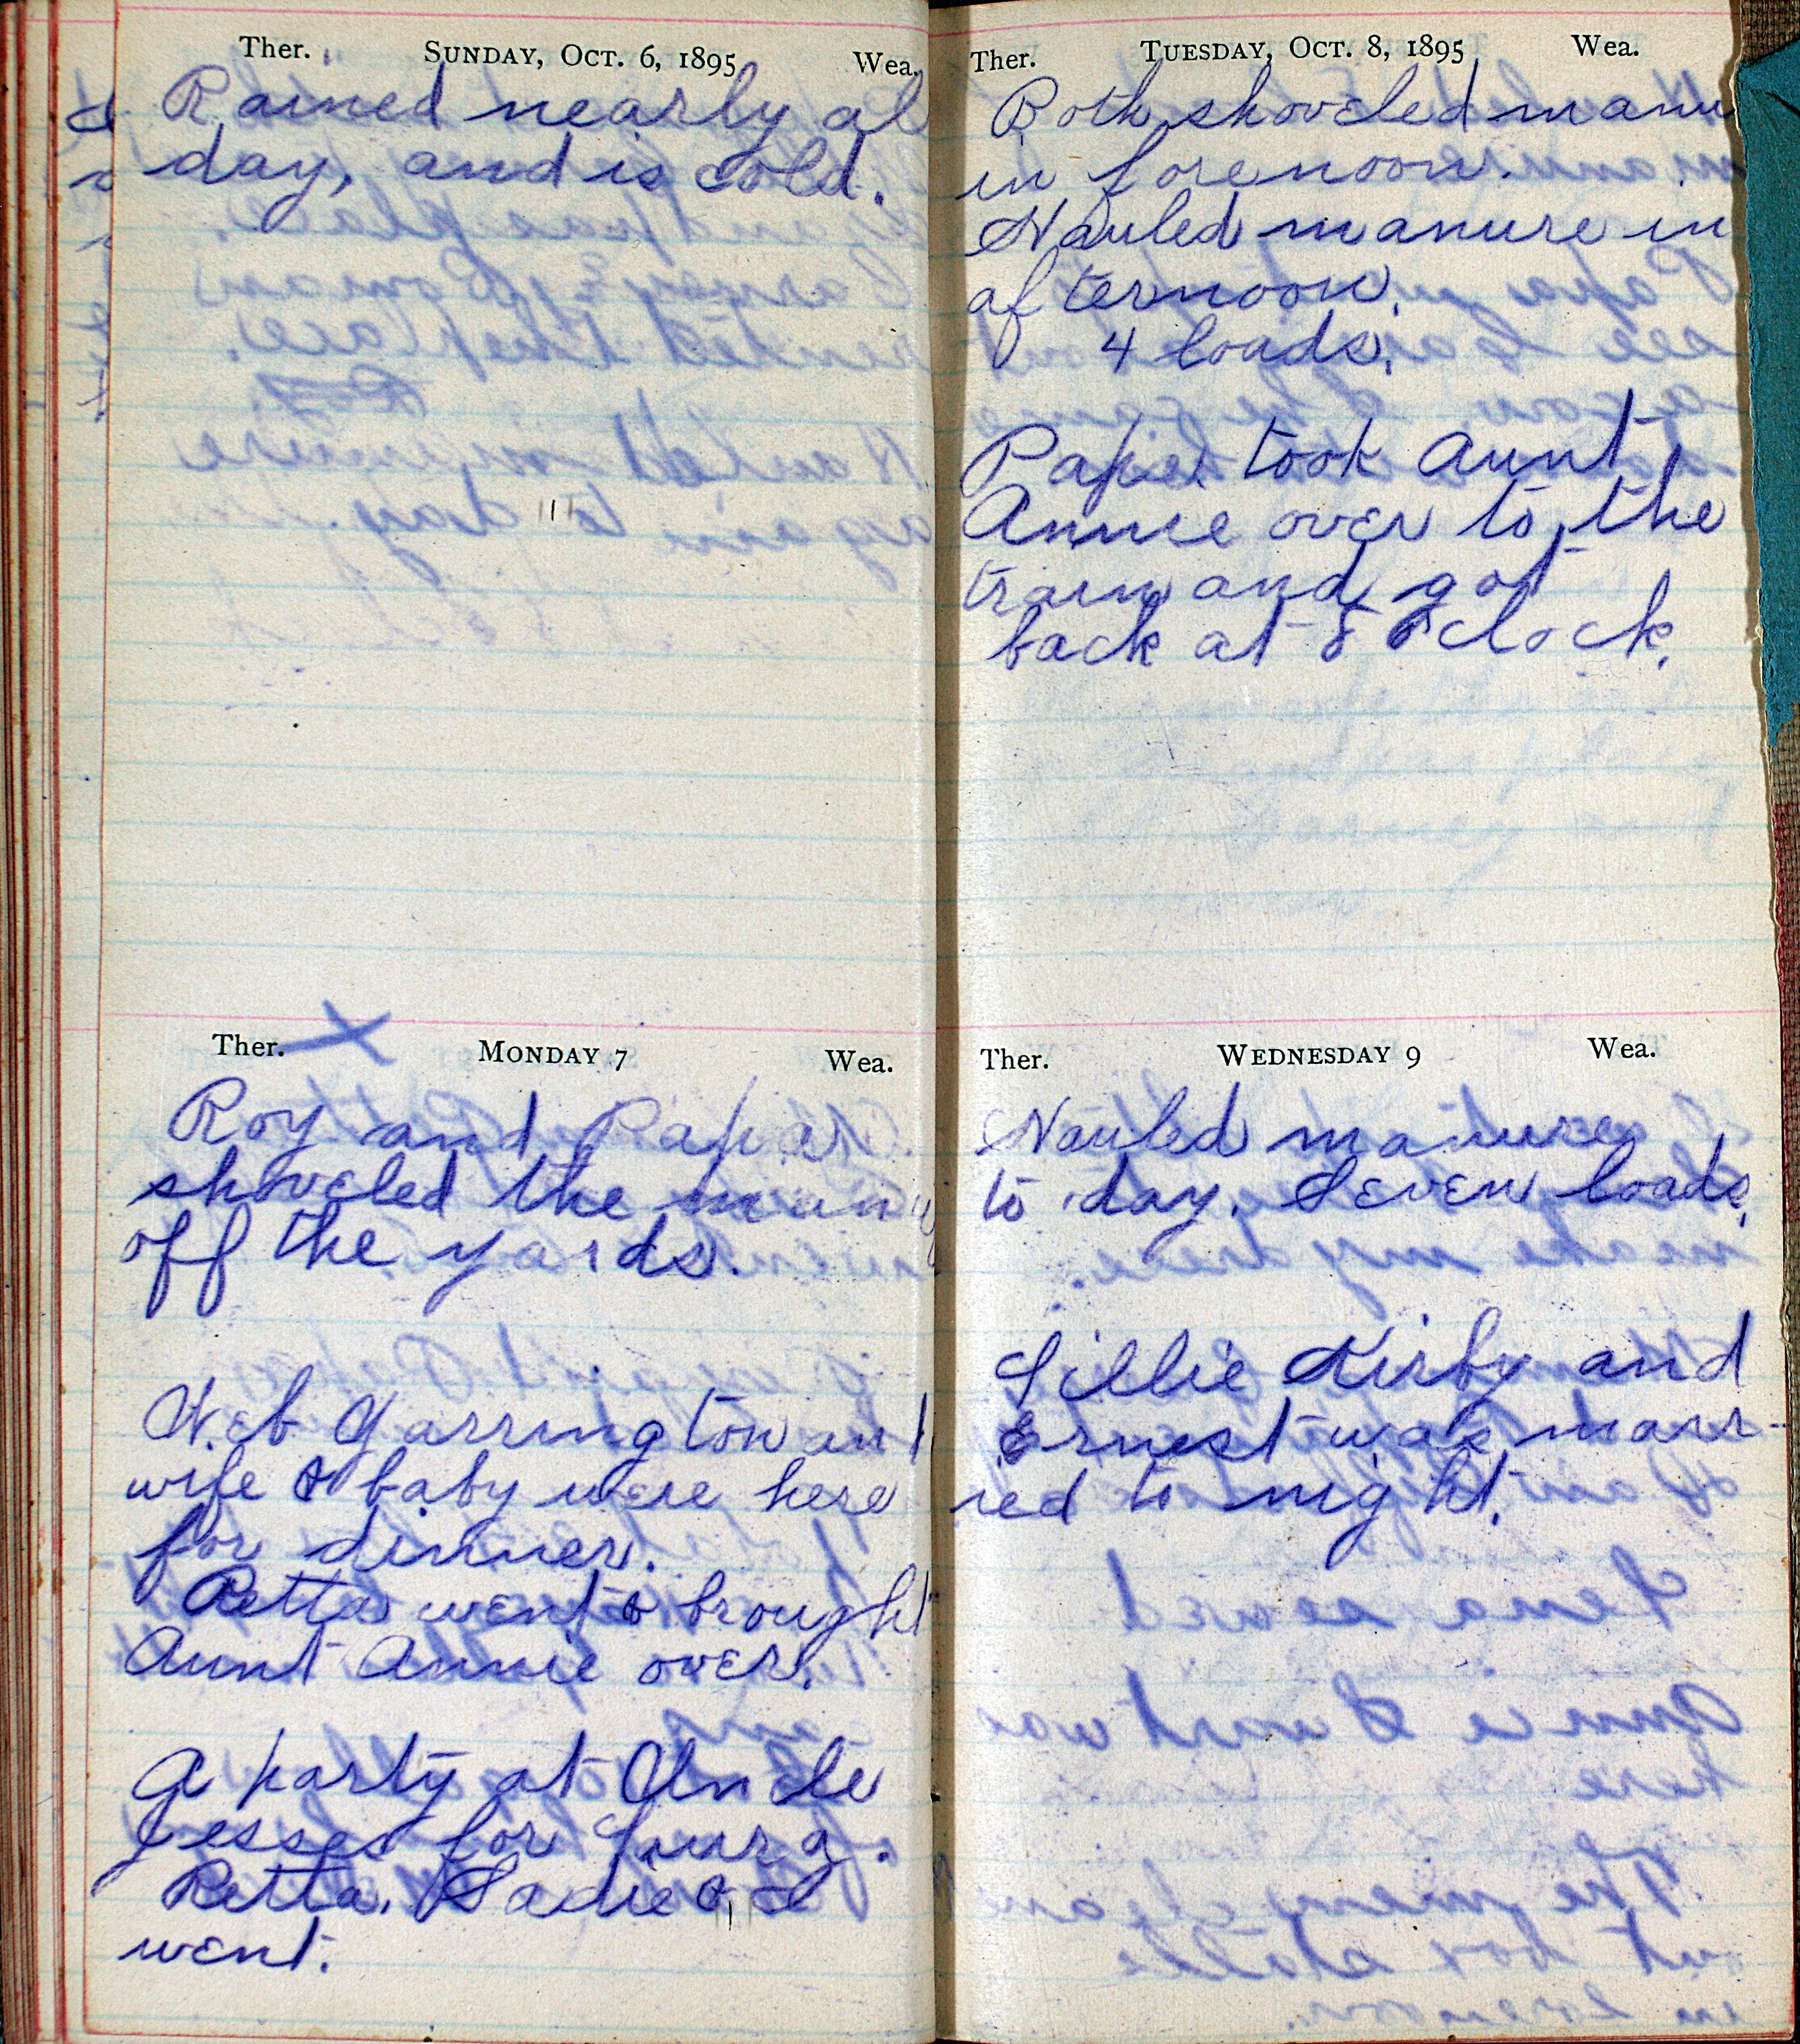 Ther. SUNDAY, OCT. 6, 1895 Wea.
Rained nearly al
day, and is cold.
Ther. MONDAY 7 Wea.
Roy and Papa
shoveled the manu
off the yards.
Web Yarrington and
wife & baby were here
for dinner.
Retta went & brought
Aunt Annie over.
A party at Uncle
Jesses for Lura.
Retta, Sadie & I
went.
Ther. TUESDAY, OCT. 8, 1895 Wea.
Both shoveled manu
in forenoon.
Hauled manure in
afternoon.
4 loads.
Papa took Aunt
Annie over to the
train and got
back at 8 o'clock.
Ther. WEDNESDAY 9 Wea.
Hauled manure
to day. Seven loads.
Lillie Kirby and
Ernest was marr-
ied to night.